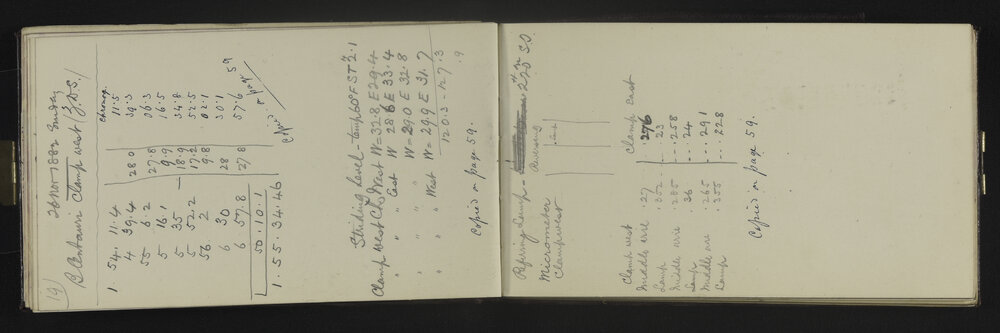 19)
26 Nov 1882 Sunday
B Centauri Clamp west (J.D.S.)
Chronog.
1. 54. 11.4 280 11.5
4 39.4 39.3
55 6.2 27.8 06.3
5 16.1 9.9 16.5
5 35 18.9 34.8
5 52.2 17.2 52.5
56 2 9.8 02.1
6 30 28 30.1
6 57.8 27.8 57.6
50.10.1
1.55.34.46
Copied on page 59
Striding Level - temp 60° F ST 2.1
Clamp West W = 32.8 E 29.4
" " East W 28.6 E 33.4
" " " W = 29.0 E 32.8
" " West W = 29.9 E 31.7
120.3 - 127.3
.9
Copied on page 59.
Lamp -
Micrometer Reversing
Clamp west East
Clamp west Clamp East
Middle wire .27 276
Lamp .352 ... 23
Middle wire .285 ... 258
Lamp .36 ... 24
Middle wire .265 ... 291
Lamp .355 ... 228
Copied on page 59.